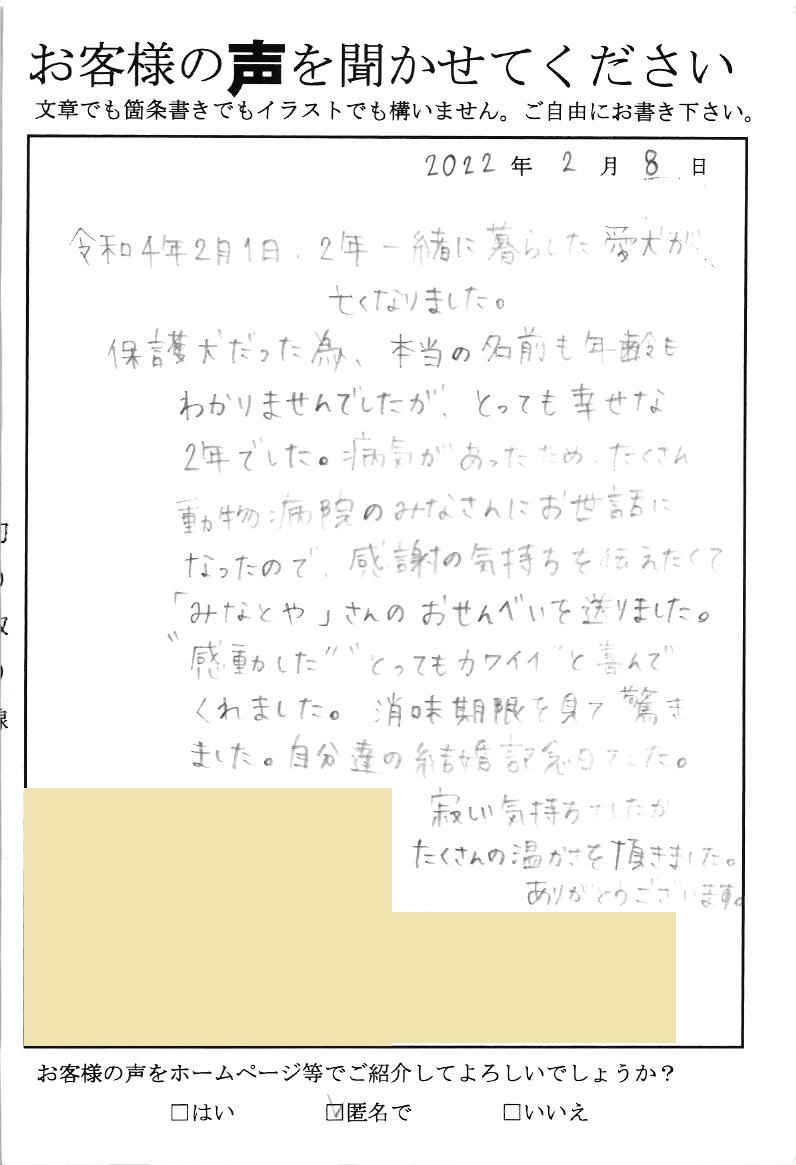 お客様の声を聞かせてください
文章でも箇条書きでもイラストでも構いません。ご自由にお書き下さい。
2022年 2月 8日
令和4年2月1日、2年一緒に暮らした愛犬が、
亡くなりました。
保護犬だった為、本当の名前も年齢も
わかりませんでしたが、とっても幸せな
2年でした。病気があったため、たくさん
動物病院のみなさんにお世話に
なったので、感謝の気持ちを伝えたくて
「みなとや」さんのおせんべいを送りました。
"感動した" "とってもカワイイ"と喜んで
くれました。消味期限を見て驚き
ました。自分達の結婚記念日でした。
寂しい気持ちでしたが
たくさんの温かさを頂きました。
ありがとうございます。
お客様の声をホームページ等でご紹介してよろしいでしょうか?
□はい ☑匿名で □いいえ